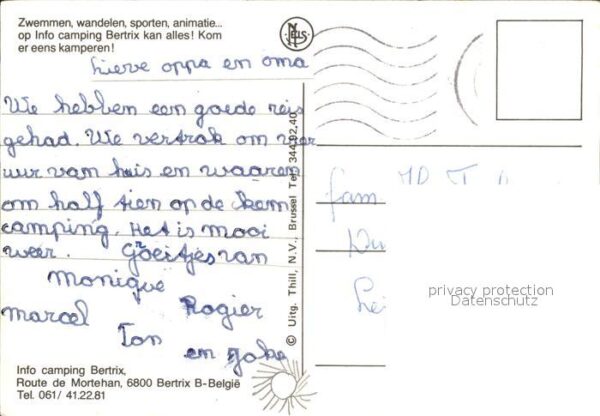 Zwemmen, wandelen, sporten, animatie...
op Info camping Bertrix kan alles! Kom
er eens kamperen!
NELS
Lieve oppa en oma
We hebben een goede reis
gehad. We vertrok om vier
uur van huis en waaren
om half tien op de
camping. Het is mooi
weer. Groetjes van
Monique
Marcel Rogier
Ton
en Joke
Info camping Bertrix,
Route de Mortehan, 6800 Bertrix B-België
Tel. 061/ 41.22.81
© Uitg. Thill, N.V., Brussel Tel. 344.92.40
fam
privacy protection
Datenschutz